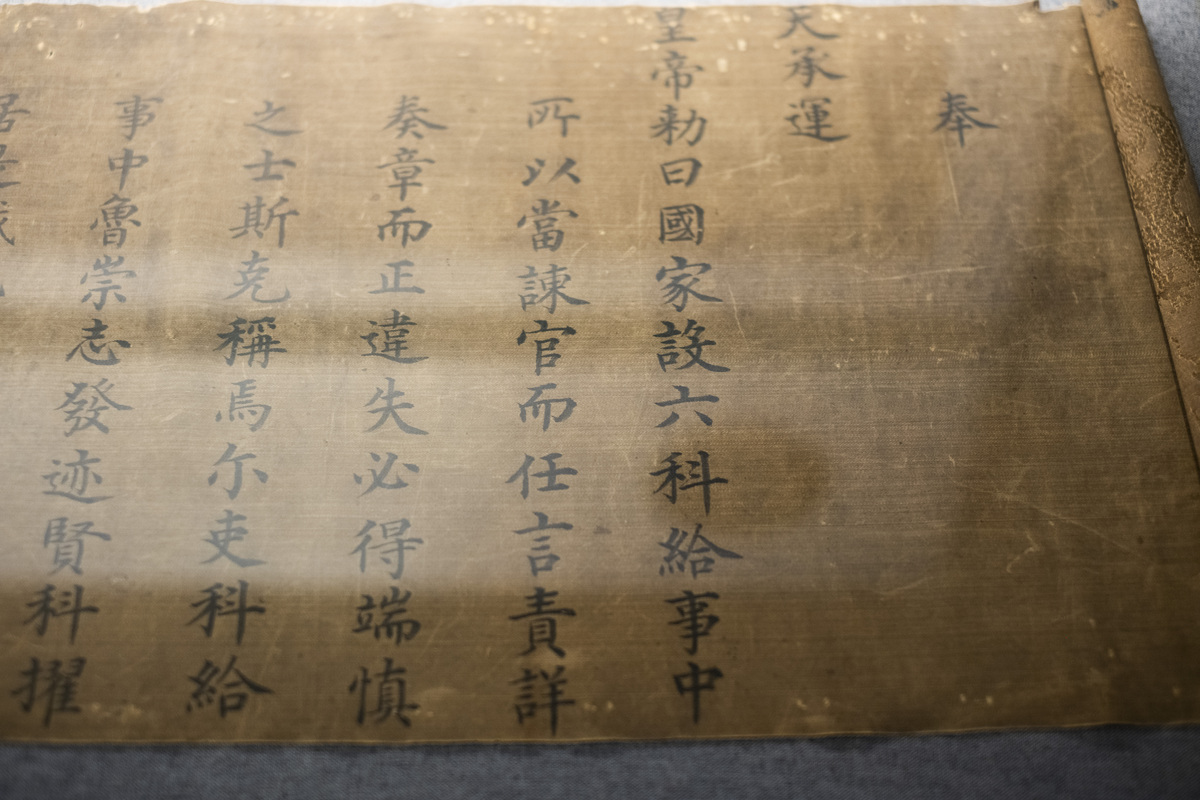 奉
天承運
皇帝勅曰國家設六科給事中
所以當諫官而任言責詳
奏章而正違失必得端慎
之士斯克稱焉尔吏科給
事中魯崇志發迹賢科擢
居是